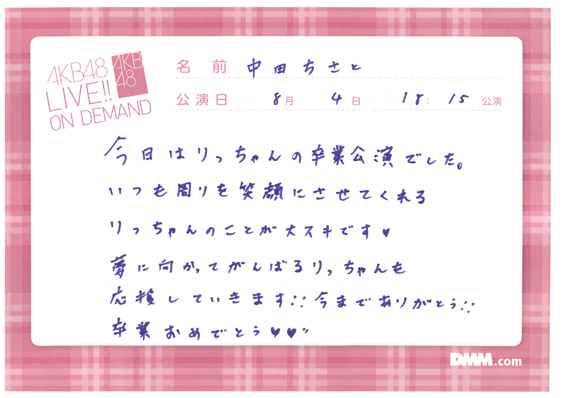 AKB48
LIVE!!
ON DEMAND
AKB
48
名前 中田ちさと
公演日 8月 4日 18:15 公演
今日はりっちゃんの卒業公演でした。
いつも周りを笑顔にさせてくれる
りっちゃんのことが大スキです♥
夢に向かってがんばるりっちゃんを
応援していきます!! 今までありがとう!!
卒業おめでとう♥♥"
DMM.com